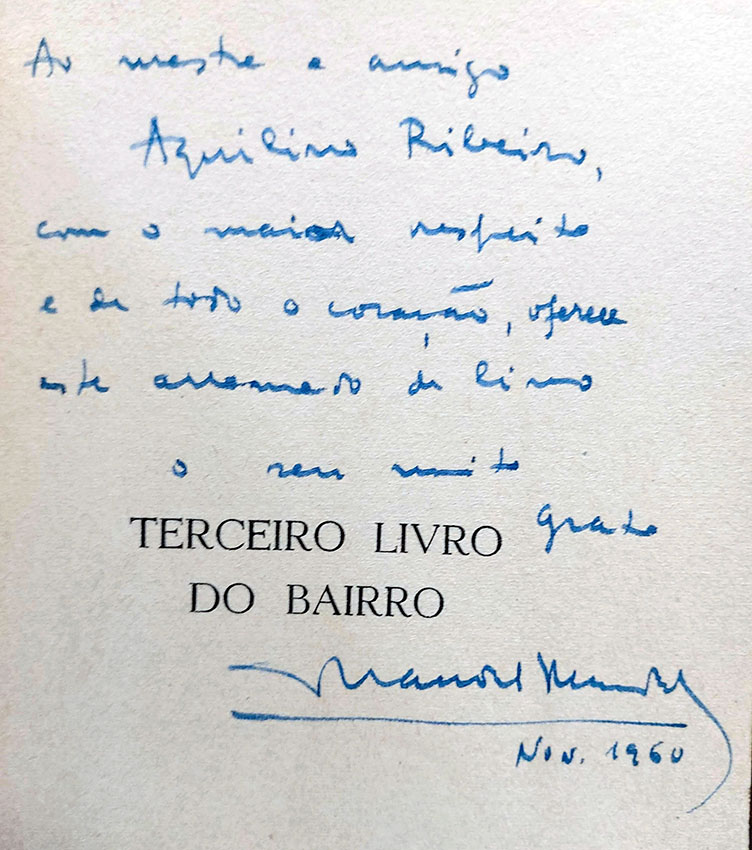 Ao mestre e amigo
Aquilino Ribeiro,
com o maior respeito
e de todo o coração, oferece
este arremedo de livro
o seu muito
grato
TERCEIRO LIVRO
DO BAIRRO
Manuel Mendes
Nov. 1960